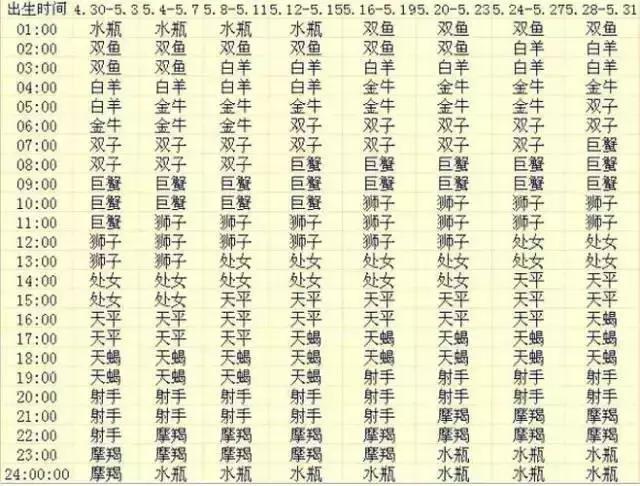 出生时间 4.30-5.3 5.4-5.7 5.8-5.11 5.12-5.15 5.16-5.19 5.20-5.23 5.24-5.27 5.28-5.31
01:00 水瓶 水瓶 水瓶 水瓶 双鱼 双鱼 双鱼 双鱼
02:00 双鱼 双鱼 双鱼 双鱼 双鱼 双鱼 白羊 白羊
03:00 双鱼 双鱼 白羊 白羊 白羊 白羊 白羊 白羊
04:00 白羊 白羊 白羊 白羊 金牛 金牛 金牛 金牛
05:00 白羊 金牛 金牛 金牛 金牛 金牛 金牛 双子
06:00 金牛 金牛 金牛 双子 双子 双子 双子 双子
07:00 双子 双子 双子 双子 双子 双子 双子 巨蟹
08:00 双子 双子 双子 巨蟹 巨蟹 巨蟹 巨蟹 巨蟹
09:00 巨蟹 巨蟹 巨蟹 巨蟹 巨蟹 巨蟹 巨蟹 巨蟹
10:00 巨蟹 巨蟹 巨蟹 巨蟹 狮子 狮子 狮子 狮子
11:00 巨蟹 狮子 狮子 狮子 狮子 狮子 狮子 狮子
12:00 狮子 狮子 狮子 狮子 狮子 狮子 处女 处女
13:00 狮子 狮子 处女 处女 处女 处女 处女 处女
14:00 处女 处女 处女 处女 处女 处女 天平 天平
15:00 处女 处女 天平 天平 天平 天平 天平 天平
16:00 天平 天平 天平 天平 天平 天平 天平 天蝎
17:00 天平 天平 天平 天蝎 天蝎 天蝎 天蝎 天蝎
18:00 天蝎 天蝎 天蝎 天蝎 天蝎 天蝎 天蝎 天蝎
19:00 天蝎 天蝎 天蝎 天蝎 射手 射手 射手 射手
20:00 射手 射手 射手 射手 射手 射手 射手 射手
21:00 射手 射手 射手 射手 射手 摩羯 摩羯 摩羯
22:00 射手 摩羯 摩羯 摩羯 摩羯 摩羯 摩羯 摩羯
23:00 摩羯 摩羯 摩羯 摩羯 摩羯 水瓶 水瓶 水瓶
24:00:00 摩羯 水瓶 水瓶 水瓶 水瓶 水瓶 水瓶 水瓶